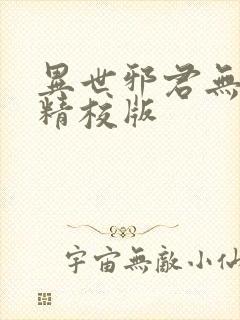 異世邪君無
精校版
宇宙無敵小仙